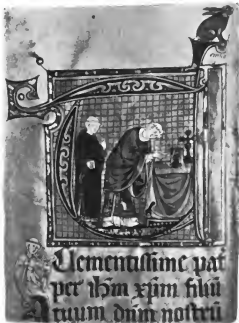 T
Clementissime pat
per ihm xpm filiū
tuum dnm nostrū